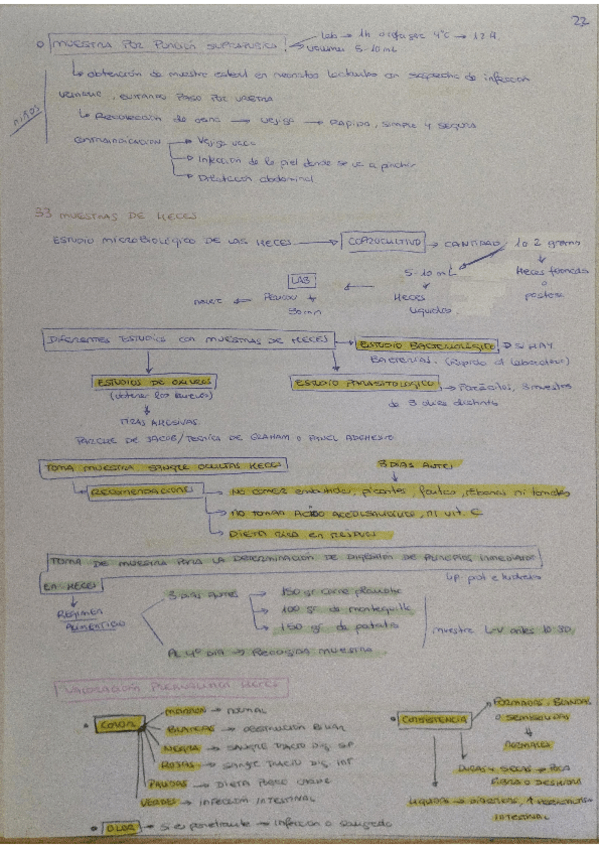 22
MUESTRA POR PUNCIÓN SUPRAPÚBICA
Lab → 1h o refrigerar 4ºC → 12h.
volumen 5-10 mL
obtención de muestra esteril en neonatos lactantes con sospecha de infección
urinaria, evitando paso por uretra
NIÑOS
Recolección de orina → vejiga → Rápida, simple y segura
contraindicación → Vejiga vacía
Infección de la piel donde se va a pinchar
Dilatación abdominal
33 MUESTRAS DE HECES
ESTUDIO MICROBIOLÓGICO DE LAS HECES → COPROCULTIVO → CANTIDAD 1 o 2 gramos
5-10 mL
Heces formadas
o
pastosa
LAB
Heces
líquidas
30 min
DIFERENTES ESTUDIOS CON MUESTRAS DE HECES → ESTUDIO BACTERIOLÓGICO → SI HAY
BACTERIAS. (Rápido al laboratorio)
ESTUDIOS DE OXIUROS
(obtener los huevos)
ESTUDIO PARASITOLOGICO → Parásitos, 3 muestras
de 3 días distintos
TIRAS ADHESIVAS
PARCHE DE JACOB/TECNICA DE GRAHAM O PANEL ADHESIVO
TOMA MUESTRA SANGRE OCULTAS HECES
3 DIAS ANTES
RECOMENDACIONES → NO comer embutidos, picantes, frutos, rábanos ni tomates
NO TOMAR ACIDO ACETILSALICILICO, NI VIT. C
DIETA RICA EN RESIDUOS
TOMA DE MUESTRA PARA LA DETERMINACIÓN DE DIGESTIÓN DE PRINCIPIOS INMEDIATOS
EN HECES
REGIMEN
ALIMENTICIO
3 DIAS ANTES → 150 gr carne plancha
100 gr de mantequilla
150 gr de patata
muestra L-V antes 10:30.
AL 4º DIA → Recogida muestra
VALORACIÓN HECES
COLOR
MARRÓN → NORMAL
BLANCAS → OBSTRUCCIÓN BILIAR
NEGRA → SANGRE TRACTO DIG. SUP
ROJAS → SANGRE TRACTO DIG. INF
PALIDAS → DIETA POBRE CARNE
VERDES → INFECCIÓN INTESTINAL
CONSISTENCIA
FORMADAS, BLANDAS
O SEMISEGUIDAS
NORMALES
DURAS Y SECAS → POCA
FIBRA O DESHIDRA
LIQUIDAS → DIARREAS, ↑
INTESTINAL
OLOR → si es penetrante → infección o sangrado